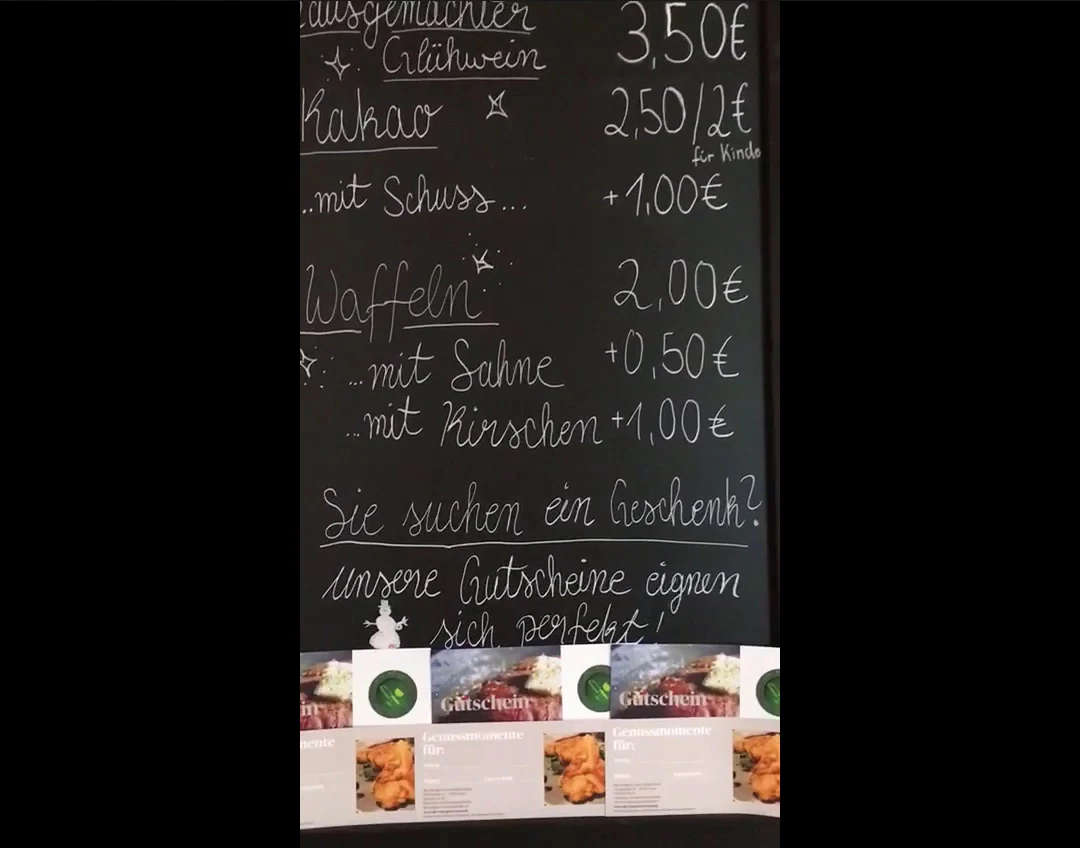 hausgemachter
Glühwein 3,50€
Kakao 2,50/2€
für Kinde
..mit Schuss... +1,00€
Waffeln 2,00€
...mit Sahne +0,50€
...mit Kirschen +1,00€
Sie suchen ein Geschenk?
unsere Gutscheine eignen
sich perfekt!
in Gutschein Gutschein
mente Genussmomente für: Genussmomente für: